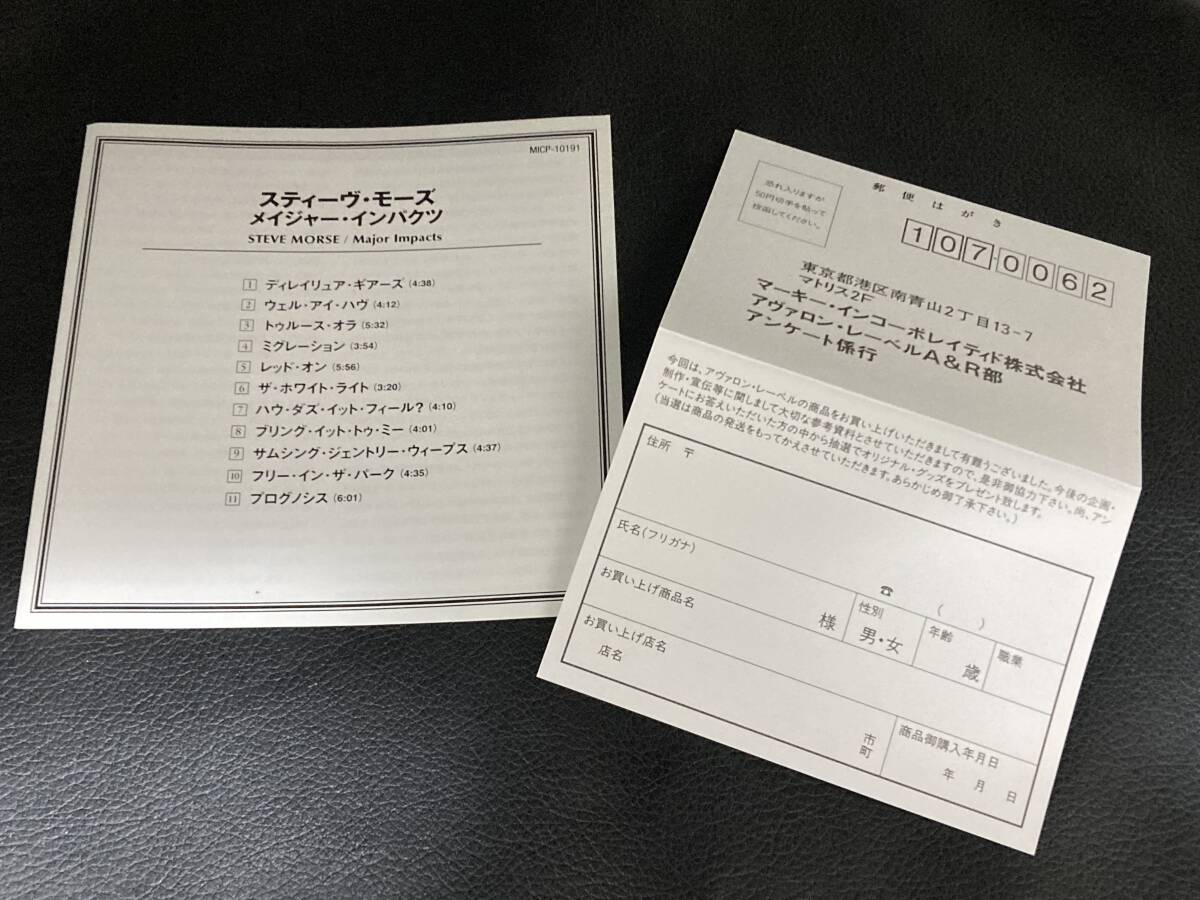 MICP-10191
スティーヴ・モーズ
メイジャー・インパクツ
STEVE MORSE / Major Impacts
1 ディレイリュア・ギアーズ (4:38)
2 ウェル・アイ・ハヴ (4:12)
3 トゥルース・オラ (5:32)
4 ミグレーション (3:54)
5 レッド・オン (5:56)
6 ザ・ホワイト・ライト (3:20)
7 ハウ・ダズ・イット・フィール? (4:10)
8 ブリング・イット・トゥ・ミー (4:01)
9 サムシング・ジェントリー・ウィープス (4:37)
10 フリー・イン・ザ・パーク (4:35)
11 プログノシス (6:01)
郵便はがき
恐れ入りますが
50円切手を貼って
投函してください。
107-0062
東京都港区南青山2丁目13-7
マトリス2F
マーキー・インコーポレイティド株式会社
アヴァロン・レーベルA&R部
アンケート係行
今回は、アヴァロン・レーベルの商品をお買い上げいただきまして有難うございました。今後の企画・
制作・宣伝等に関しまして大切な参考資料とさせていただきますので、是非御協力下さい。尚、アン
ケートにお答えいただいた方の中から抽選でオリジナル・グッズをプレゼント致します。
(当選は商品の発送をもってかえさせていただきます。あらかじめ御了承下さい。)
住所 〒
☎ ( )
氏名(フリガナ)
様
性別
男・女
年齢
歳
職業
お買い上げ商品名
お買い上げ店名
店名
市
町
商品御購入年月日
年 月 日